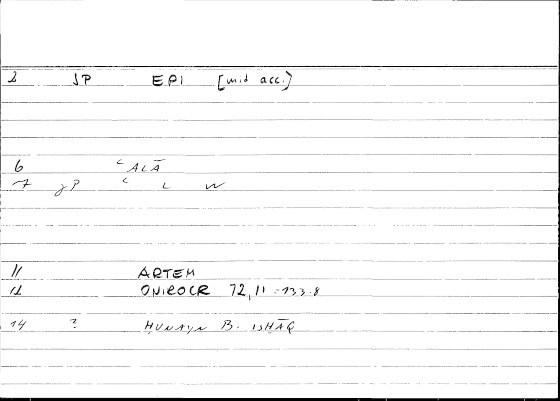 2 JP EPI [mid acc.]
6 ʿALĀ
7 JP ʿ L W
11 ARTEM
12 ONIROCR 72,11 - 133.8
14 ? ḤUNAYN B. ISḤĀQ